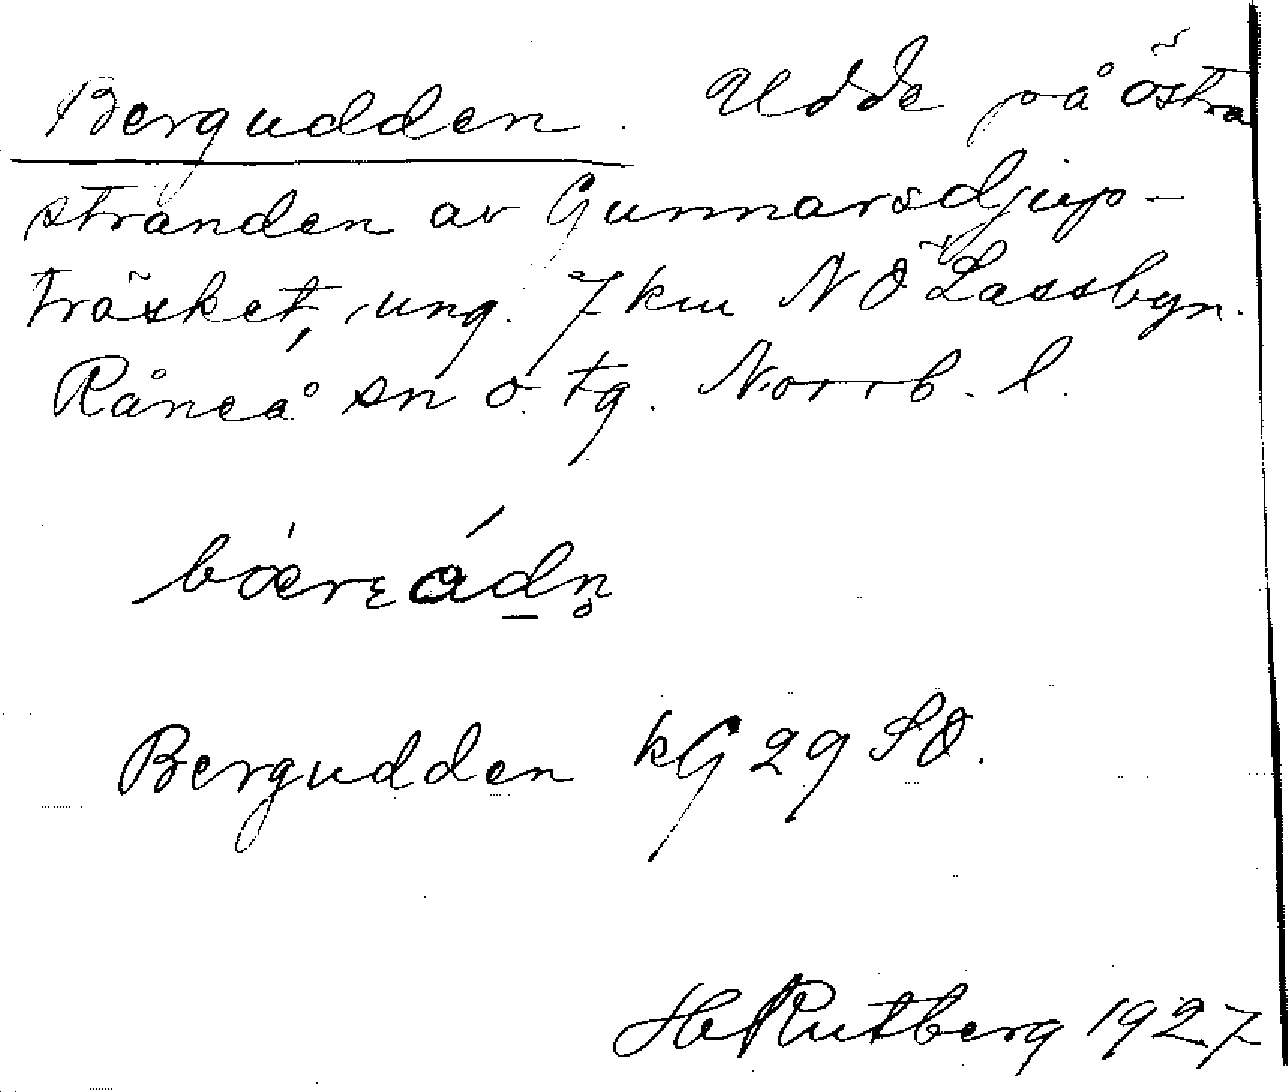 Bergudden. Udde på östra
stranden av Gunnarsdjup-
träsket, ung. 7 km NÖ Lassbyn.
Råneå sn o. tg. Norrb. l.
Bergudden kG 29 SO.
H Rutberg 1927